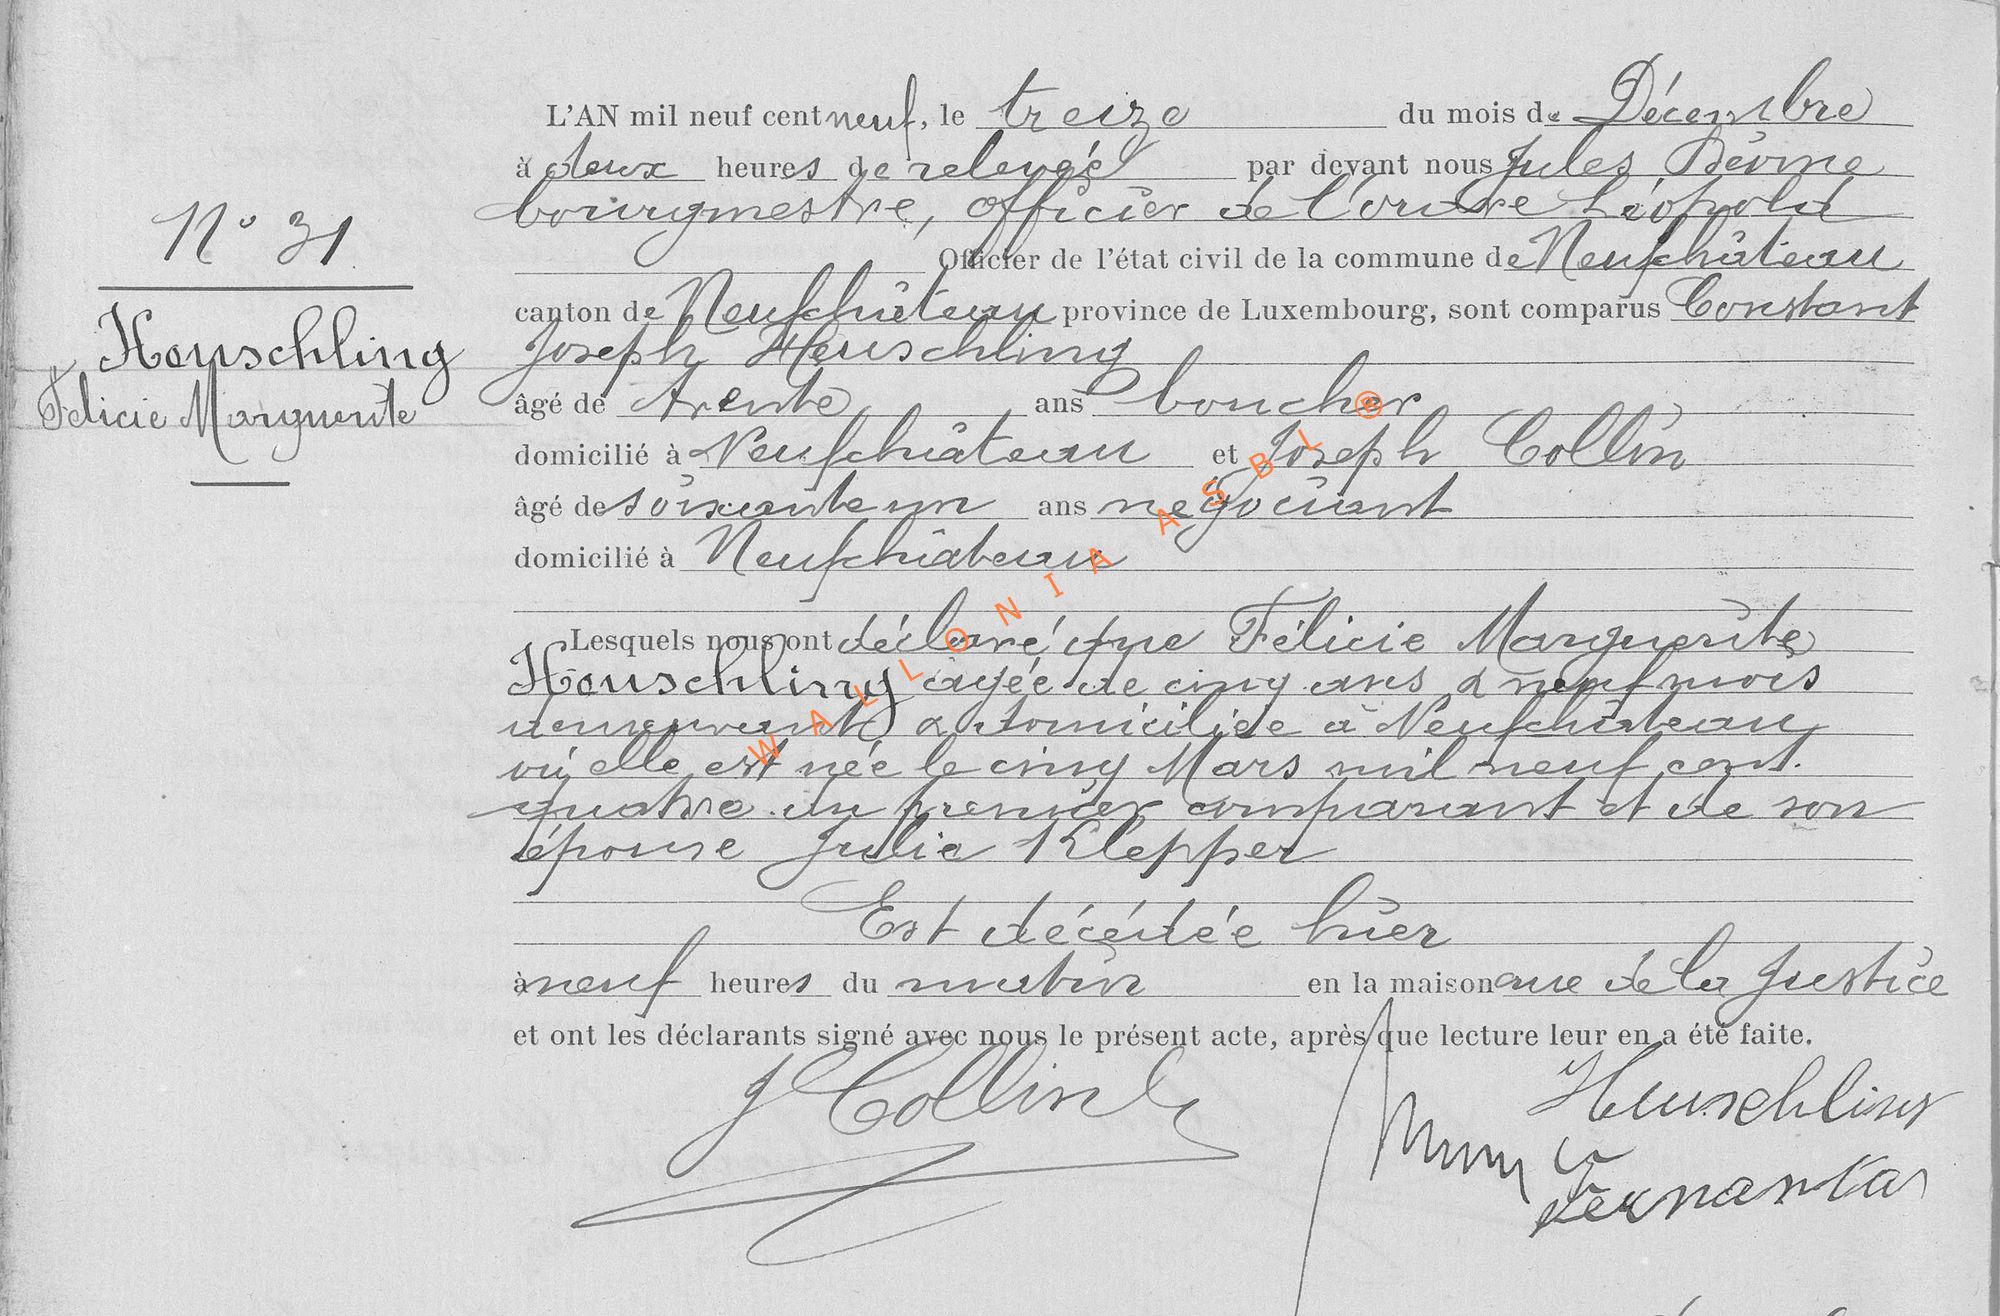 L'AN mil neuf cent neuf, le treize du mois de Décembre
à deux heures de relevée par devant nous Jules
bourgmestre, officier de l'ordre Léopold
Officier de l'état civil de la commune de Neufchâteau
canton de Neufchâteau province de Luxembourg, sont comparus Constant
Joseph Heuschling
âgé de trente ans boucher
domicilié à Neufchâteau et Joseph Collin
âgé de soixante un ans négociant
domicilié à Neufchâteau
Lesquels nous ont déclaré que Félicie Marguerite
Heuschling agée de cinq ans & neuf mois
demeurant & domiciliée à Neufchâteau
où elle est née le cinq Mars mil neuf cent
quatre du premier comparant et de son
épouse Julie Klepper
Est décédée hier
à neuf heures du matin en la maison rue de la Justice
et ont les déclarants signé avec nous le présent acte, après que lecture leur en a été faite.
J Collin
Heuschling
N° 31
Heuschling
Félicie Marguerite
WALLONIA ASBL ®